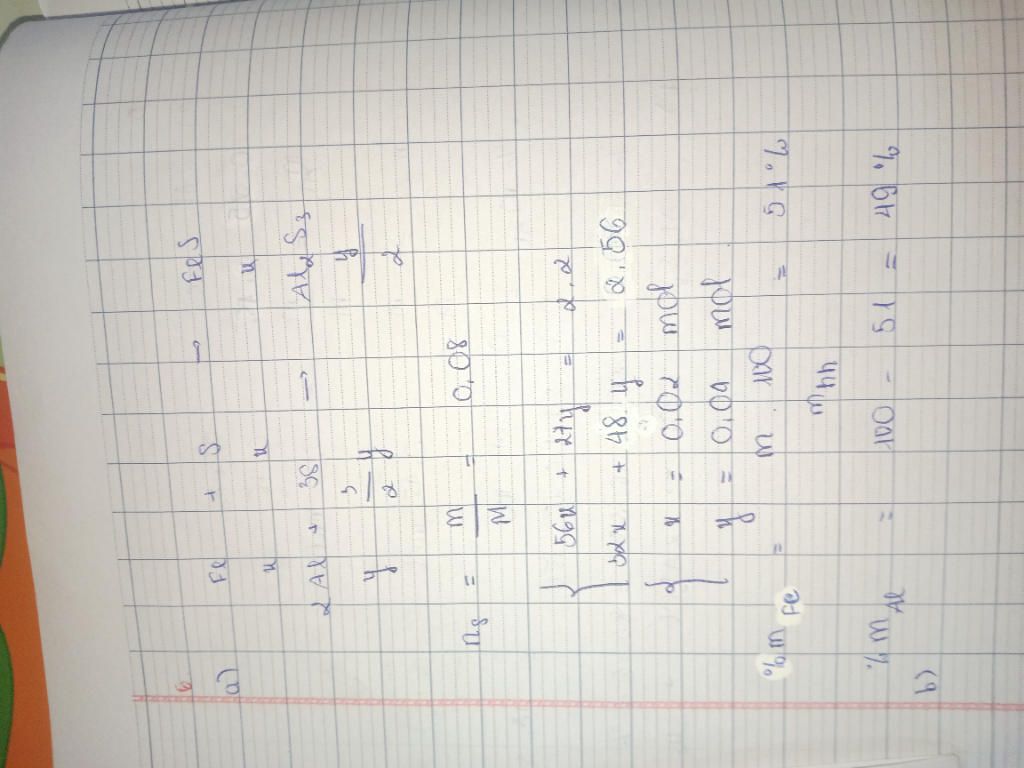 6
a) Fe + S → FeS
x x x
2Al + 3S → Al2S3
y 3/2 y y/2
nS = m/M = 0,08
{ 56x + 27y = 2,2
32x + 48.y = 2,56
{ x = 0,02 mol
y = 0,04 mol
%mFe = m.100/mhh = 51%
%mAl = 100 - 51 = 49%
b)